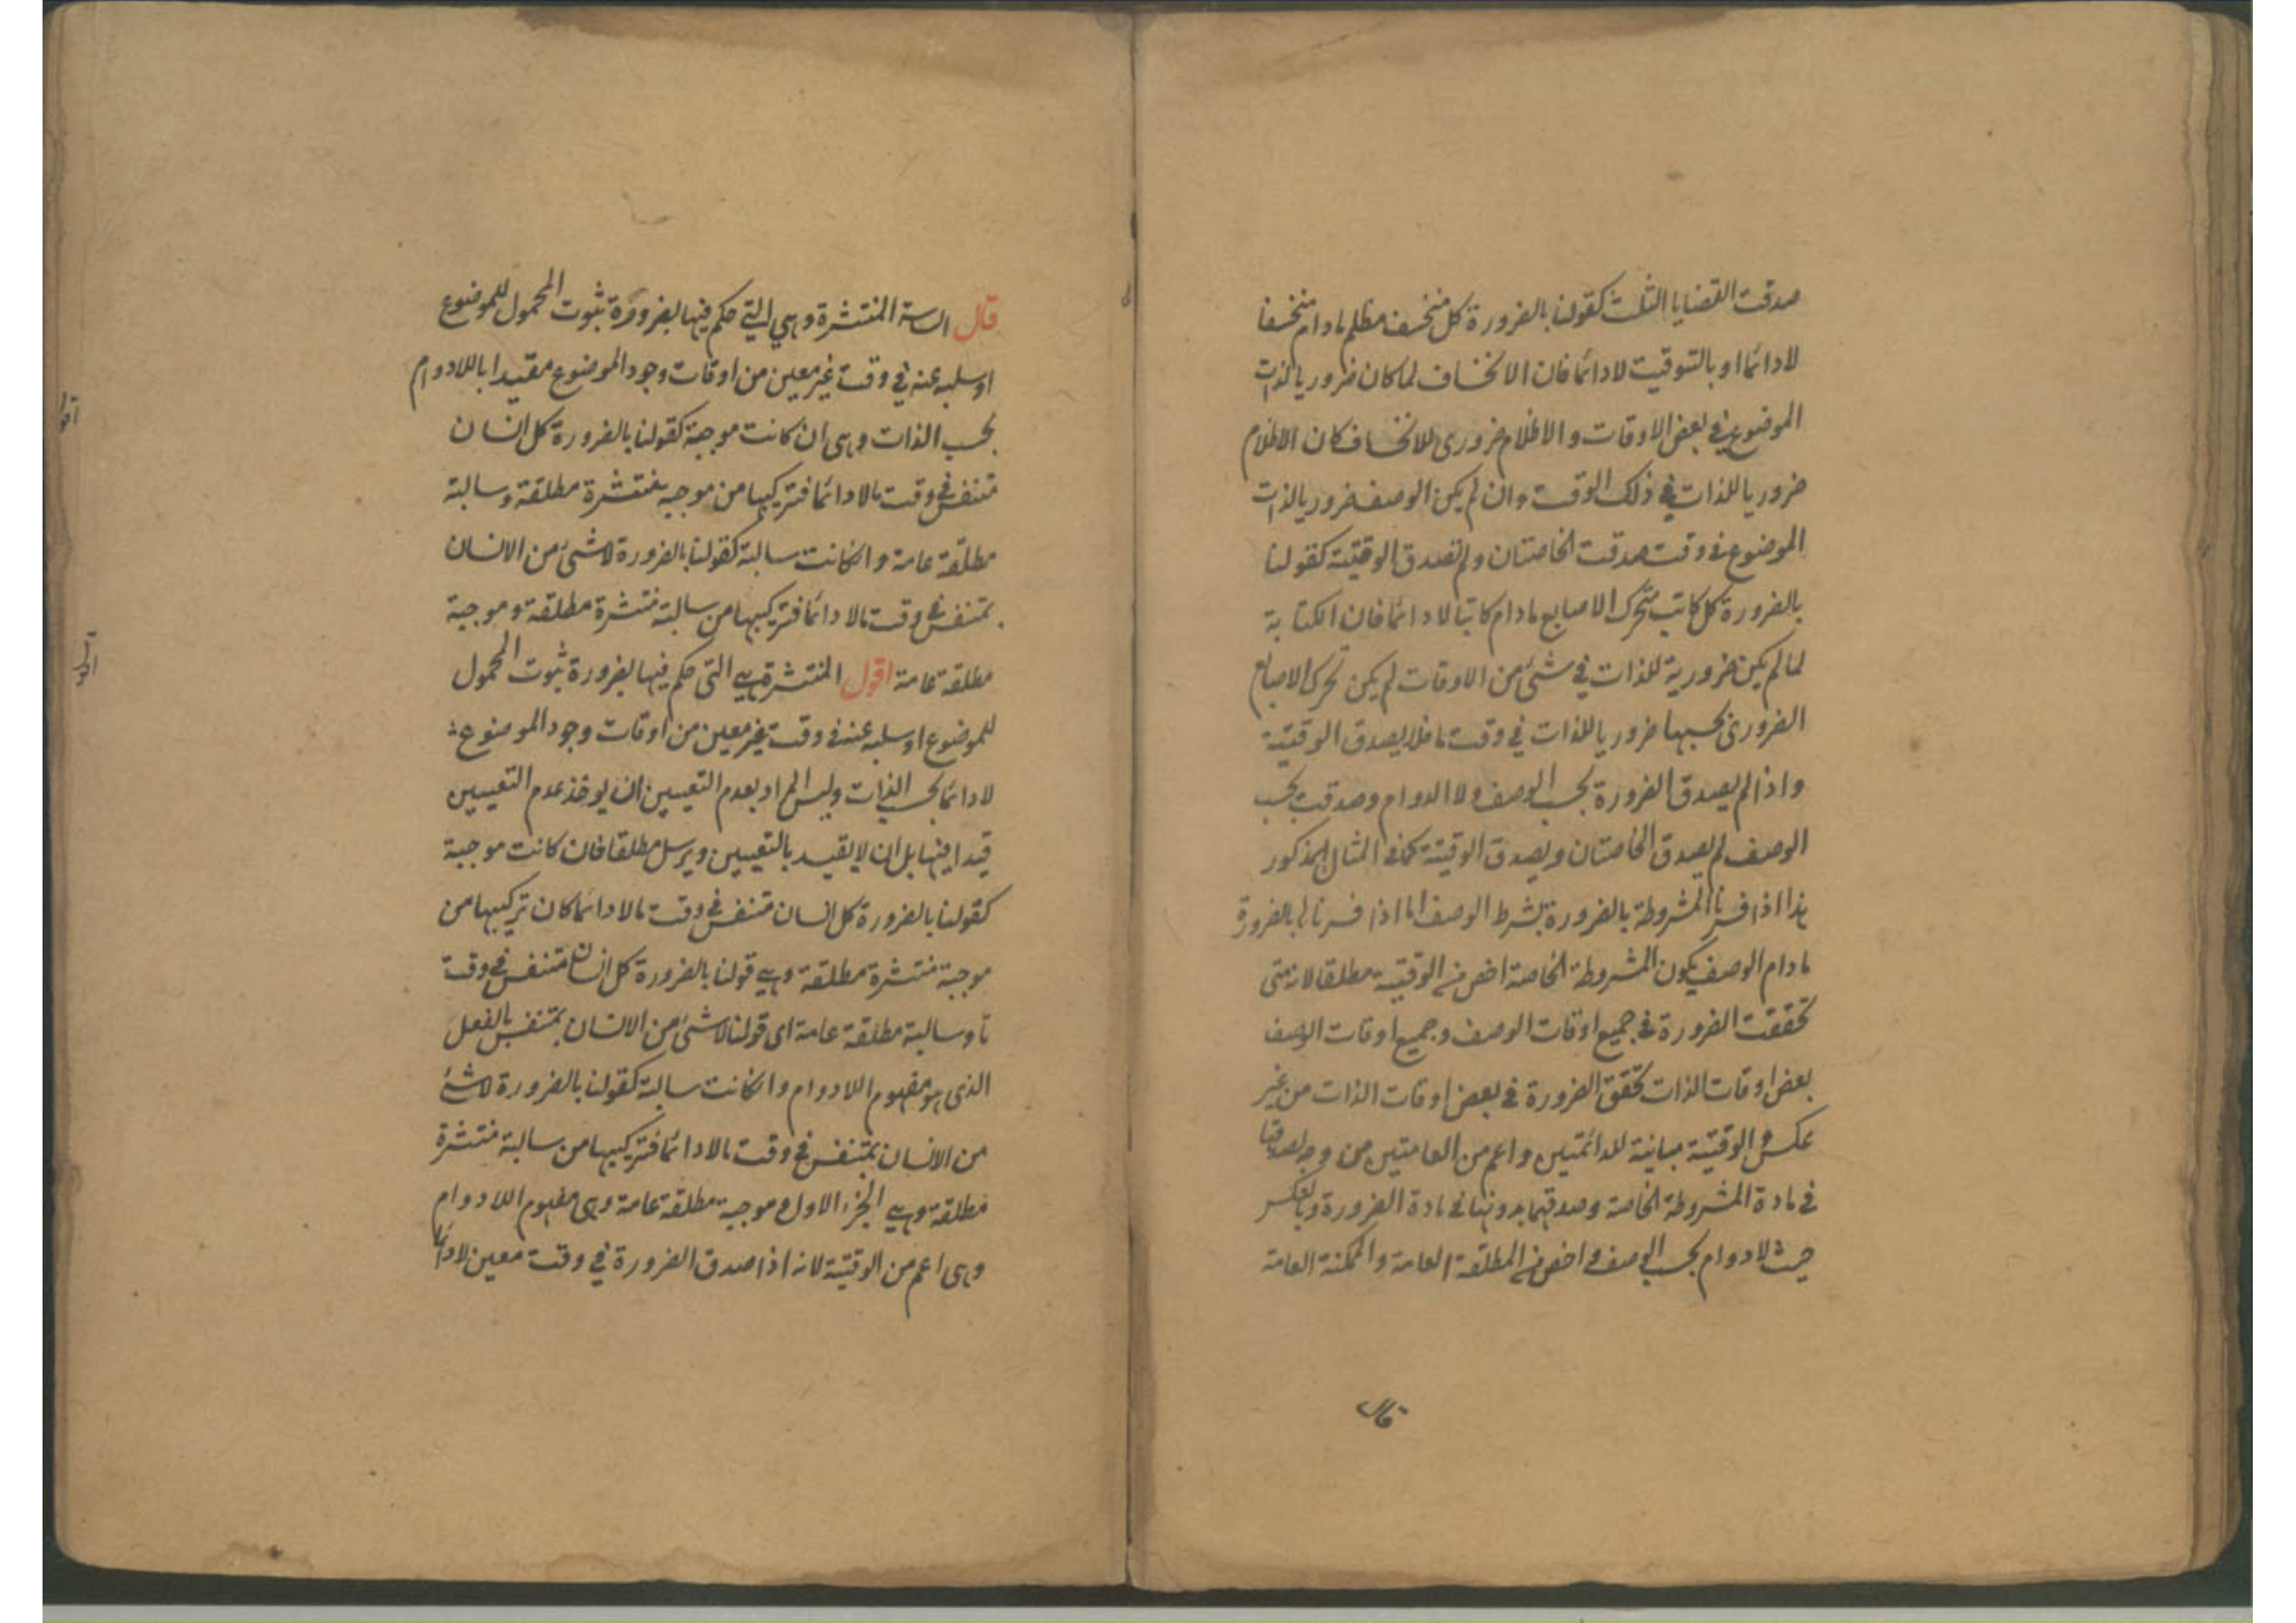 صدقت القضايا الثلث كقولنا بالضرورة كل منخسف مظلم مادام منخسفا
لادائما او بالتوقيت لادائما فان الانخساف لما كان ضروريا لذات
الموضوع في بعض الاوقات و الاظلام ضروري للانخساف كان الاظلام
ضروريا للذات في ذلك الوقت وان لم يكن الوصف ضروريا لذات
الموضوع في وقت صدقت الخاصتان ولم تصدق الوقتية كقولنا
بالضرورة كل كاتب متحرك الاصابع مادام كاتبا لا دائما فان الكتابة
لما لم يكن ضرورية للذات في شئ من الاوقات لم يكن تحرك الاصابع
الضروري بحسبها ضروريا للذات في وقت ما فلا يصدق الوقتية
واذا لم يصدق الضرورة بحسب الوصف ولا الدوام وصدقت بحسب
الوصف لم يصدق الخاصتان ويصدق الوقتية كما في المثال المذكور
هذا اذا فسرنا المشروطة بالضرورة بشرط الوصف اما اذا فسرناها بالضرورة
مادام الوصف يكون المشروطة الخاصة اخص من الوقتية مطلقا لانه متى
تحققت الضرورة في جميع اوقات الوصف وجميع اوقات الوصف
بعض اوقات الذات تحقق الضرورة في بعض اوقات الذات من غير
عكس و الوقتية مباينة للدائمتين واعم من العامتين من وجه لصدقها
في مادة المشروطة الخاصة وصدقهما بدونها في مادة الضرورة وبالعكس
حيث لادوام بحسب الوصف واخص من المطلقة العامة والممكنة العامة
قال
قال السادسة المنتشرة وهي التي حكم فيها بضرورة ثبوت المحمول للموضوع
او سلبه عنه في وقت غير معين من اوقات وجود الموضوع مقيدا باللادوام
بحسب الذات وهي ان كانت موجبة كقولنا بالضرورة كل انسان
متنفس في وقت ما لا دائما فتركيبها من موجبه منتشرة مطلقة وسالبة
مطلقة عامة وانكانت سالبة كقولنا بالضرورة لاشئ من الانسان
بمتنفس في وقت ما لا دائما فتركيبها من سالبة منتشرة مطلقة وموجبة
مطلقة عامة اقول المنتشرة هي التي حكم فيها بضرورة ثبوت المحمول
للموضوع او سلبه عنه في وقت غير معين من اوقات وجود الموضوع
لادائما بحسب الذات وليس المراد بعدم التعيين ان يوخذ عدم التعيين
قيدا فيها بل ان لا يقيد بالتعيين ويرسل مطلقا فان كانت موجبة
كقولنا بالضرورة كل انسان متنفس في وقت ما لا دائما كان تركيبها من
موجبة منتشرة مطلقة وهي قولنا بالضرورة كل انسان متنفس في وقت
ما وسالبة مطلقة عامة اي قولنا لاشئ من الانسان بمتنفس بالفعل
الذي هو مفهوم اللادوام وانكانت سالبة كقولنا بالضرورة لاشئ
من الانسان بمتنفس في وقت ما لا دائما فتركيبها من سالبة منتشرة
مطلقة وهي الجزء الاول و موجبة مطلقة عامة وهي مفهوم اللادوام
وهي اعم من الوقتية لانه اذا صدق الضرورة في وقت معين لادائما